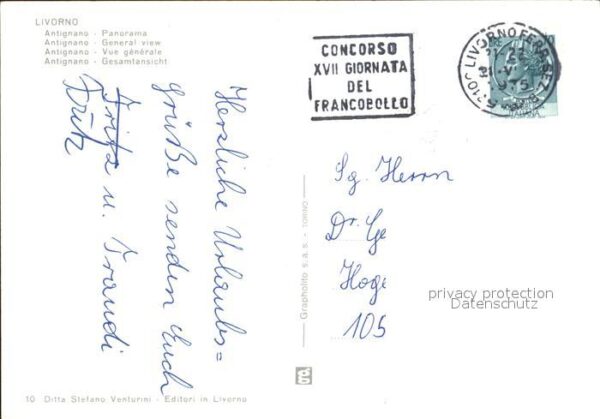 LIVORNO
Antignano - Panorama
Antignano - General view
Antignano - Vue générale
Antignano - Gesamtansicht
Herzliche Urlaubs=
grüße senden Euch
Fritz u. Traudi
Fritz
CONCORSO
XVII GIORNATA
DEL
FRANCOBOLLO
LIVORNO FERR.
Sg. Herrn
Dr. Ge
Hoge
105
privacy protection
Datenschutz
Grapholito s.a.s. - TORINO
10 Ditta Stefano Venturini - Editori in Livorno